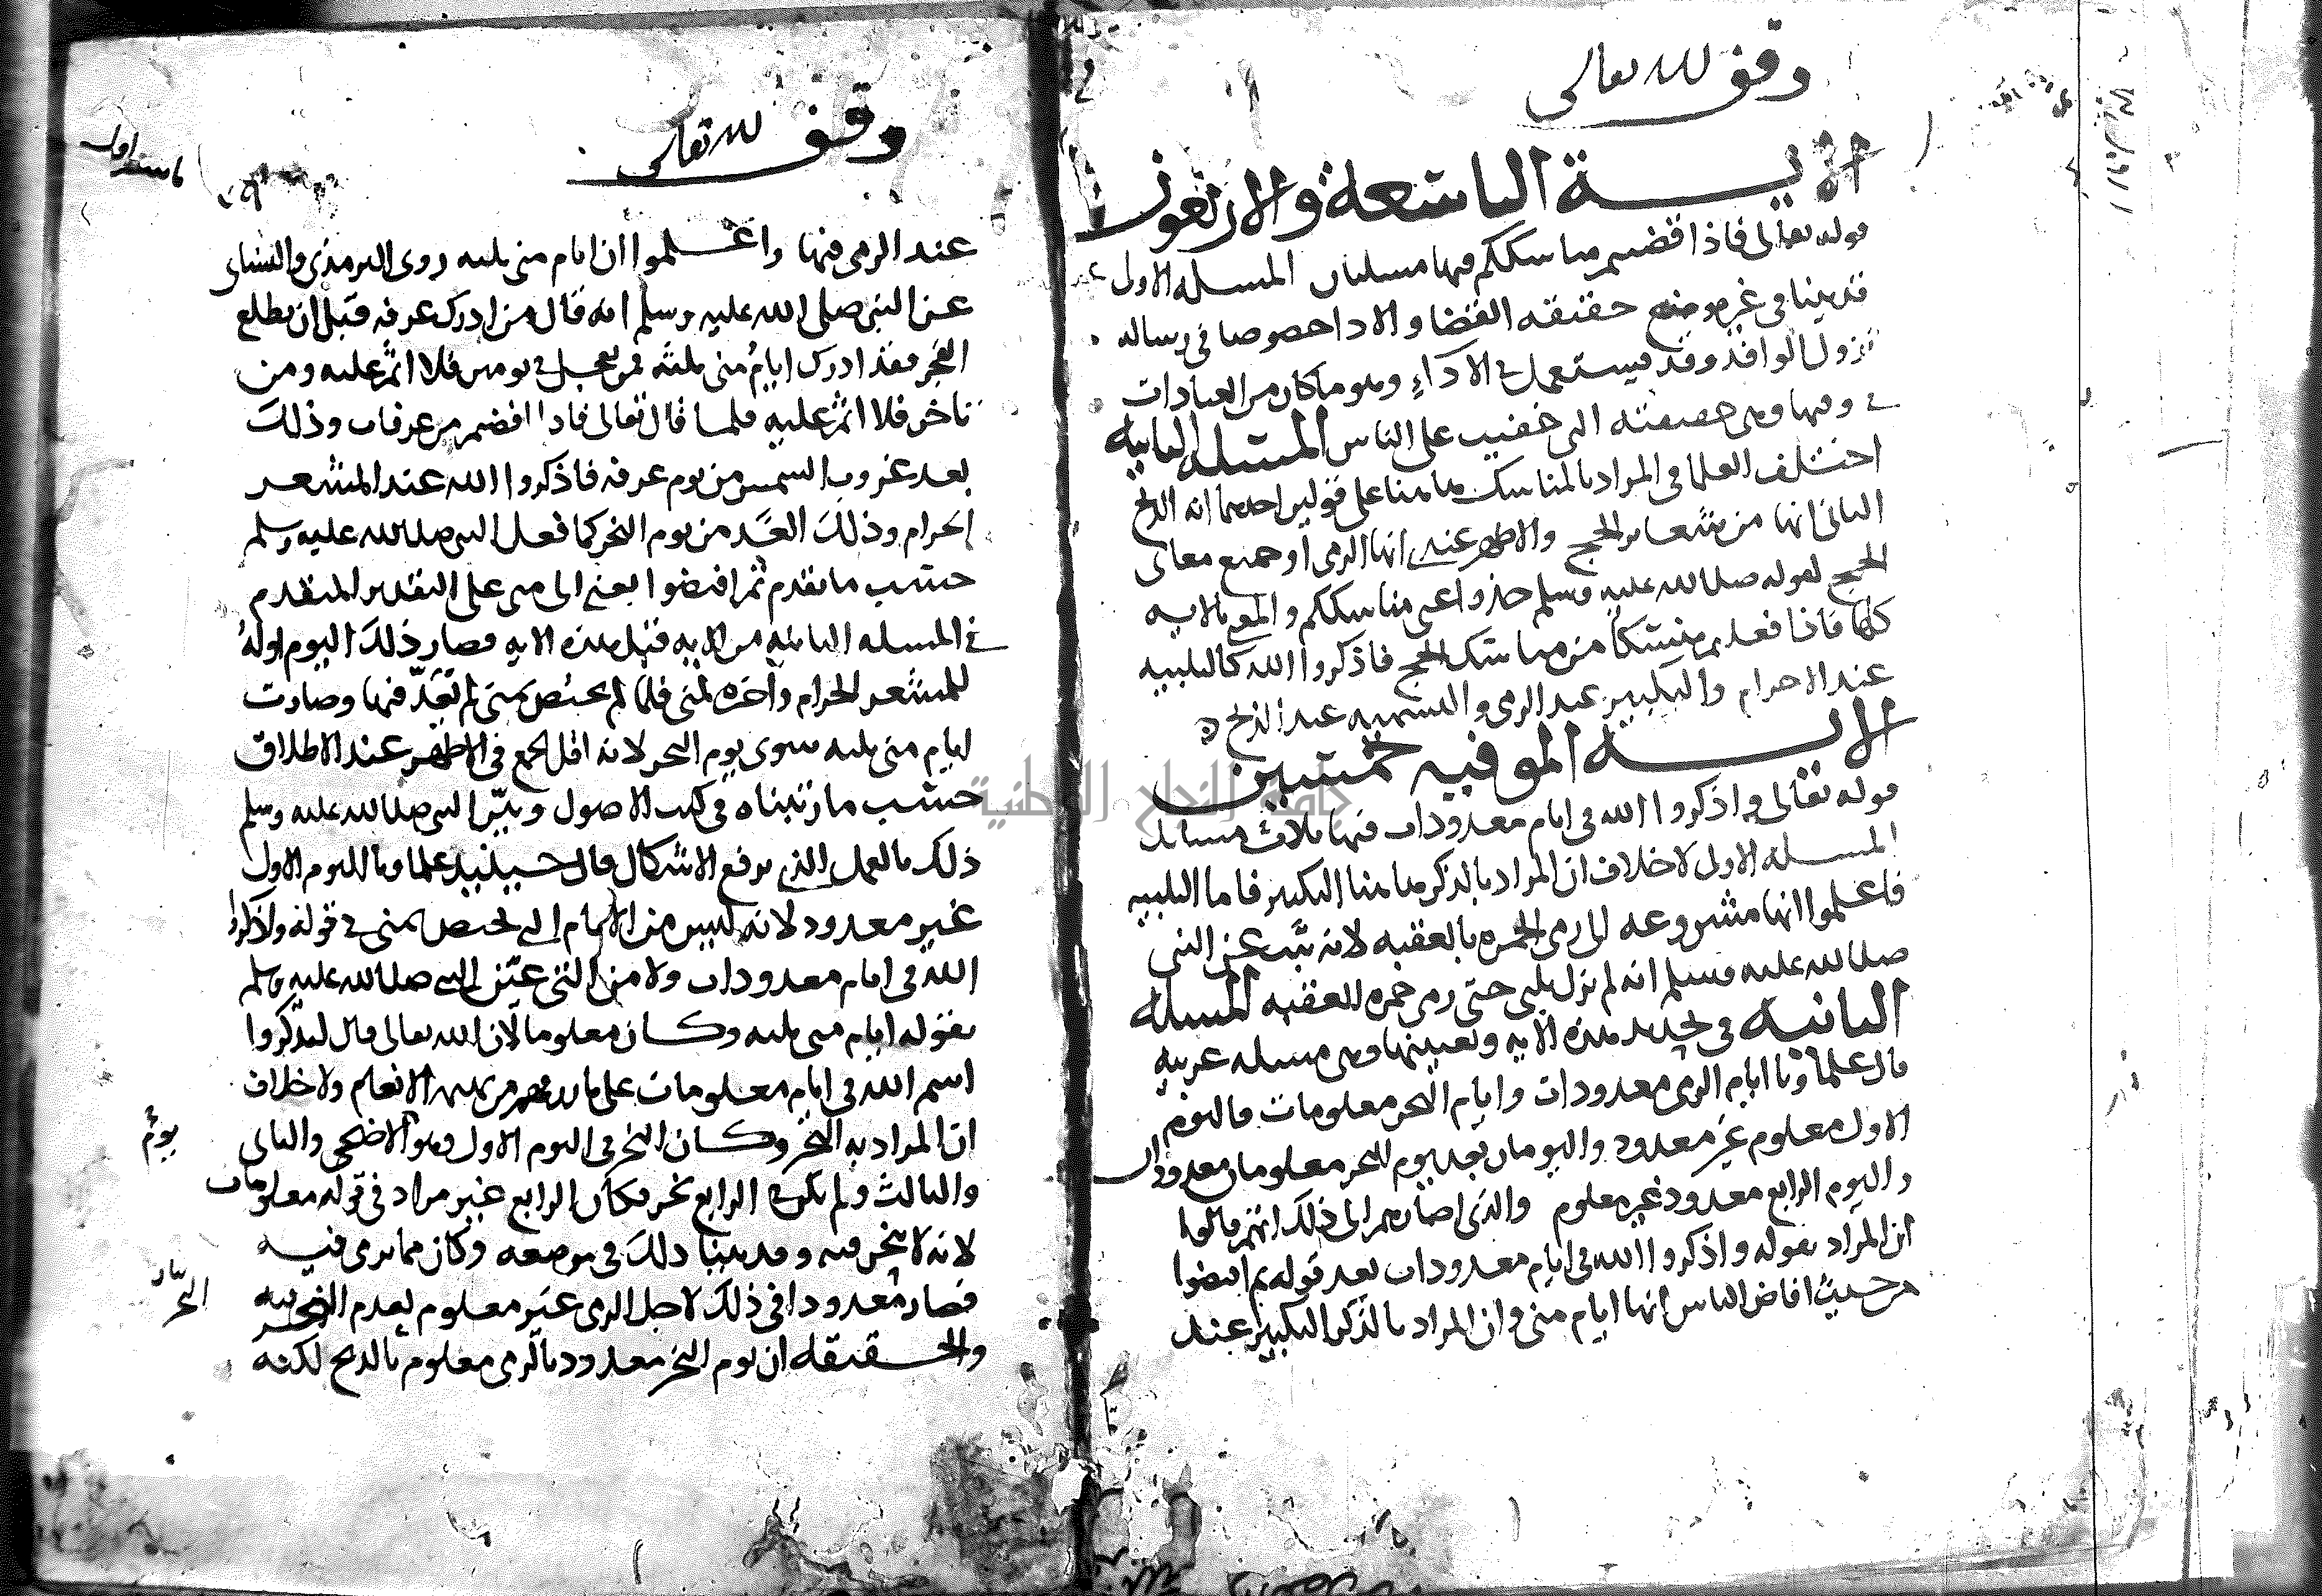 وقف لله تعالى
الآيـــــة التاسعة والاربعون
قوله تعالى فاذا قضيتم مناسككم فيها مسلتان المسله الاولى
قد بينا في غير موضع حقيقه القضا والادا خصوصا في رساله
نزول الوافد وقد يستعمل في الاداء وهو ما كان من العبادات
في وقتها وهي حقيقته التي خفيت على الناس المسله الثانيه
اختلف العلما في المراد بالمناسك هاهنا على قولين احدهما انه الذبح
الثاني انها من شعاير الحج والاظهر عندي انها الرمي او جميع معاني
الحج لقوله صلى الله عليه وسلم خذوا عني مناسككم والمعنى بالايه
كلها فاذا فعلتم منسكا من مناسك الحج فاذكروا الله كالتلبيه
عند الاحرام والتكبير عند الرمي والتسميه عند الذبح ه
الايـــــة الموفيه خمسين
قوله تعالى واذكروا الله في ايام معدودات فيها ثلاث مسايل
المسله الاولى لا خلاف ان المراد بالذكر هاهنا التكبير فاما التلبيه
فاعلموا انها مشروعه الى رمي الجمره بالعقبه لانه ثبت عن النبي
صلى الله عليه وسلم انه لم يزل يلبي حتى رمى جمره العقبه المسله
الثانيه في تحديد هذه الايه وتعيينها وهي مسله عربيه
قال علماونا ايام الرمي معدودات وايام النحر معلومات فاليوم
الاول معلوم غير معدود واليومان بعد يوم النحر معلومان معدودان
واليوم الرابع معدود غير معلوم والذي اصارهم الى ذلك انهم قالوا
ان المراد بقوله واذكروا الله في ايام معدودات بعد قوله ثم افيضوا
من حيث افاض الناس انها ايام منى وان المراد بالذكر التكبير عند
وقف لله تعالى
عند الرمي فيها واعلموا ان ايام منى ثلثه روى الترمذي والنساي
عن النبي صلى الله عليه وسلم انه قال من ادرك عرفه قبل ان يطلع
الفجر فقد ادرك ايام منى ثلثه فمن تعجل في يومين فلا اثم عليه ومن
تاخر فلا اثم عليه فلما قال تعالى فاذا افضتم من عرفات وذلك
بعد غروب الشمس من يوم عرفه فاذكروا الله عند المشعر
الحرام وذلك الغد من يوم النحر كما فعل النبي صلى الله عليه وسلم
حسب ما تقدم ثم افيضوا يعني الى منى على التقدير المتقدم
في المسله الثانيه من الايه قبل هذه الايه فصار ذلك اليوم اوله
للمشعر الحرام واخره لمنى فلما لم يختص بمنى لم يعد فيها وصارت
ايام منى ثلثه سوى يوم النحر لانه اقل الجمع في الاظهر عند الاطلاق
حسب ما رتبناه في كتب الاصول وبين النبي صلى الله عليه وسلم
ذلك بالعمل الذي يرفع الاشكال قال حينئذ علماونا اليوم الاول
غير معدود لانه ليس من الايام التي تختص بمنى في قوله واذكروا
الله في ايام معدودات ولا من التي عين النبي صلى الله عليه وسلم
بقوله ايام منى ثلثه وكان معلوما لان الله تعالى قال ليذكروا
اسم الله في ايام معلومات على ما رزقهم من بهيمه الانعام ولا خلاف
ان المراد به النحر وكان النحر في اليوم الاول وهو الاضحى والثاني
يوم
والثالث ولم يكن في الرابع نحر فكان الرابع غير مراد في قوله معلومات
لانه لا ينحر فيه وقد بينا ذلك في موضعه وكان مما يرمى فيه
فصار معدودا في ذلك لاجل الرمي غير معلوم لعدم النحر فيه
والحقيقه ان يوم النحر معدود بالرمي معلوم بالذبح لكنه